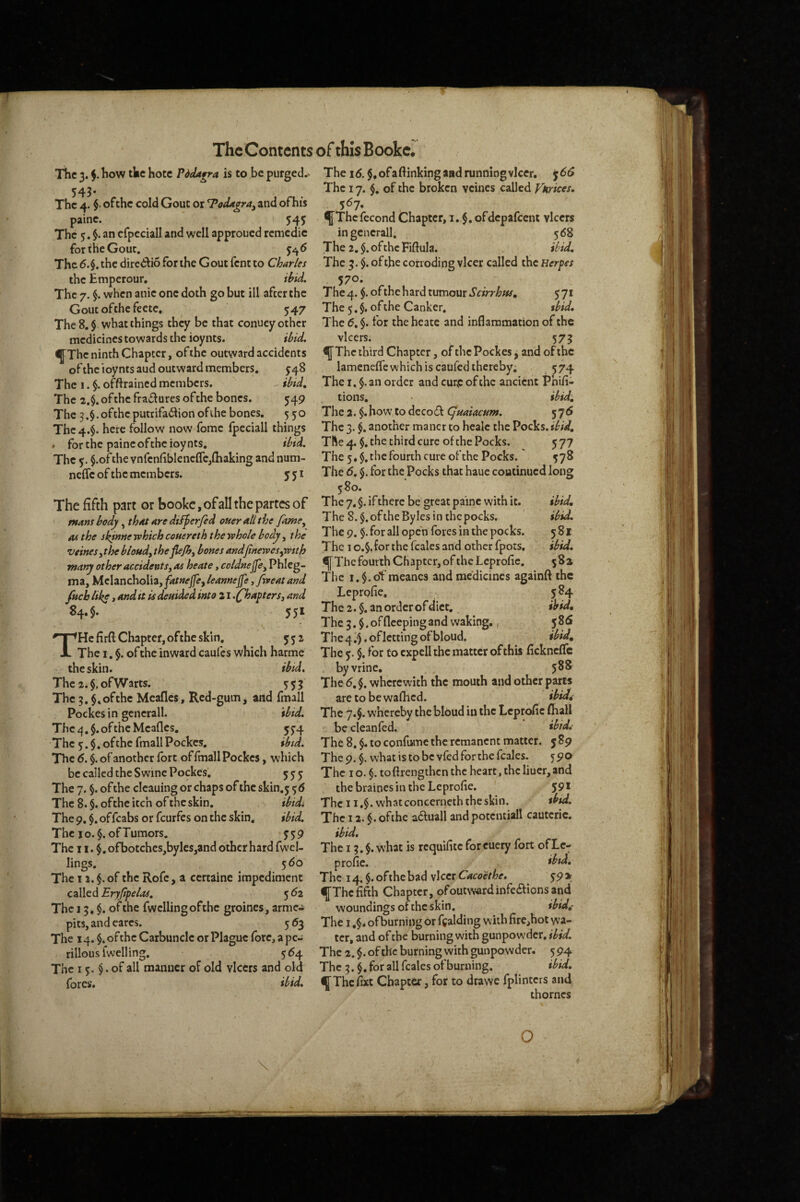 The Contents of this Booke.
The 3. §. how the hote Pódagra is to be purged.
543.
The 4. §. of the cold Gout or Podagra, and of his
paine. 545
The 5. §. an especiall and well approued remedie
for the Gout. 546
The 6. §. the directiõ for the Gout sent to Charles
the Emperour. ibid.
The 7. §. when anie one doth go but ill after the
Gout of the feete. 547
The 8. § what things they be that conuey other
medicines towards the ioynts. ibid.
¶ The ninth Chapter, of the outward accidents
of the ioynts aud outward members. 548
The 1. §. of strained members. ibid.
The 2. §. of the fractures of the bones. 549
The 3. §. of the putrifaction of the bones. 550
The 4. §. here follow now some speciall things
for the paine of the ioynts. ibid.
The 5. §. of the vnsensiblenesse, shaking and num-
nesse of the members. 551
The fifth part or booke, of all the partes of
mans body, that are dispersed ouer all the same,
as the skinne which couereth the whole body, the
veines, the bloud, the flesh, bones and sinewes, with
many other accidents, as heate, coldnesse, Phleg-
ma, Melancholia, fatnesse, leannesse, sweat and
such like, and it is deuided into 21. Chapters, and
84. §. 551
THe first Chapter, of the skin. 552
The 1. §. of the inward causes which harme
the skin. ibid.
The 2. §. of Warts. 553
The 3. §. of the Measles, Red-gum, and small
Pockes in generall. ibid.
The 4. §. of the Measles. 554
The 5. §. of the small Pockes. ibid.
The 6. §. of another sort of small Pockes, which
be called the Swine Pockes. 555
The 7. §. of the cleauing or chaps of the skin. 556
The 8. §. of the itch of the skin. ibid.
The 9. §. of scabs or scurfes on the skin. ibid.
The 10. §. of Tumors. 559
The 11. §. of botches, byles, and other hard swel-
lings. 560
The 12. §. of the Rose, a certaine impediment
called Erysipelas. 562
The 13. §. of the swelling of the groines, arme-
pits, and eares. 563
The 14. §. of the Carbuncle or Plague sore, a pe-
rillous swelling. 564
The 15. §. of all manner of old vlcers and old
sores. ibid.
The 16. §. of a stinking and running vlcer. 566
The 17. §. of the broken veines called Varices.
567.
¶ The second Chapter, 1. §. of depascent vlcers
in generall. 568
The 2. §. of the Fistula. ibid.
The 3. §. of the corroding vlcer called the Herpes
570.
The 4. §. of the hard tumour Scirrhus. 571
The 5. §. of the Canker. ibid.
The 6. §. for the heate and inflammation of the
vlcers. 573
¶ The third Chapter, of the Pockes, and of the
lamenesse which is caused thereby. 574
The 1. §. an order and cure of the ancient Phisi-
tions. ibid.
The 2. §. how to decoct Guaiacum. 576
The 3. §. another maner to heale the Pocks. ibid.
The 4. §. the third cure of the Pocks. 577
The 5. §. the fourth cure of the Pocks. 578
The 6. §. for the Pocks that haue continued long
580.
The 7. §. if there be great paine with it. ibid.
The 8. §. of the Byles in the pocks. ibid.
The 9. §. for all open sores in the pocks. 581
The 10. §. for the scales and other spots. ibid.
¶ The fourth Chapter, of the Leprosie. 582
The 1. §. of meanes and medicines against the
Leprosie. 584
The 2. §. an order of diet. ibid.
The 3. §. of sleeping and waking. 586
The 4. §. of letting of bloud. ibid.
The 5. §. for to expell the matter of this sicknesse
by vrine. 588
The 6. §. wherewith the mouth and other parts
are to be washed. ibid.
The 7. §. whereby the bloud in the Leprosie shall
be cleansed. ibid.
The 8. §. to consume the remanent matter. 589
The 9. §. what is to be vsed for the scales. 590
The 10. §. to strengthen the heart, the liuer, and
the braines in the Leprosie. 591
The 11. §. what concerneth the skin. ibid.
The 12. §. of the actuall and potentiall cauterie.
ibid.
The 13. §. what is requisite for euery sort of Le-
prosie. ibid.
The 14. §. of the bad vlcer Cacoëthe. 592
¶ The fifth Chapter, of outward infections and
woundings of the skin. ibid.
The 1. §. of burning or scalding with fire, hot wa-
ter, and of the burning with gunpowder. ibid.
The 2. §. of the burning with gunpowder. 594
The 3. §. for all scales of burning. ibid.
¶ The sixt Chapter, for to drawe splinters and
thornes
O